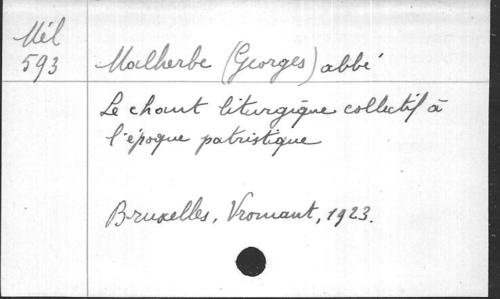 Mél
593
Malherbe (Georges) abbé
Le chant liturgique collectif à
l'époque patristique
Bruxelles, Vromant, 1923.